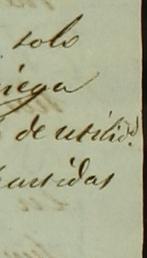 solo
niega
de utilid.d
partidas